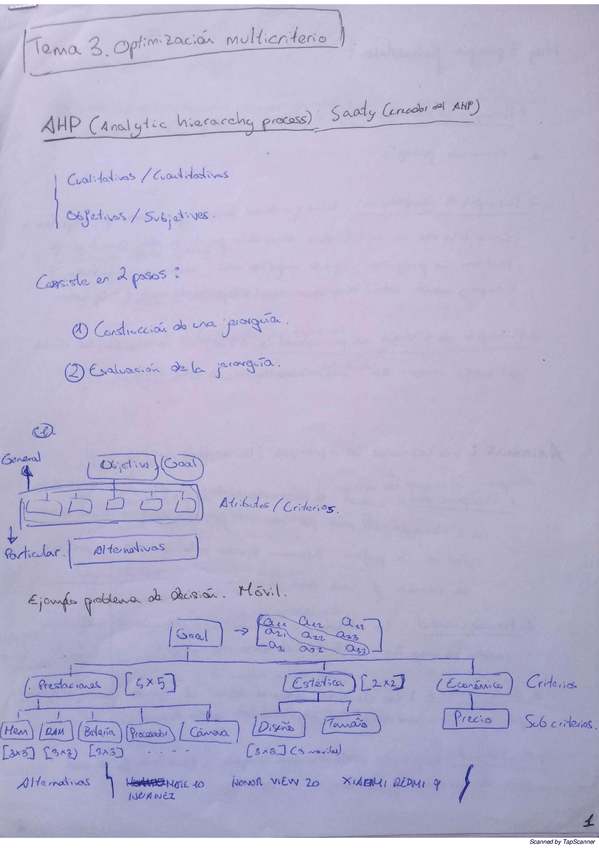 Tema 3. Optimización multicriterio
AHP (Analytic hierarchy process) Saaty (creador del AHP)
Cualitativos / Cuantitativos
Objetivos / Subjetivos.
Consiste en 2 pasos:
① Construcción de una jerarquía.
② Evaluación de la jerarquía.
①.
General
Objetivo Goal
Atributos / Criterios.
Particular. Alternativas
Ejemplo problema de decisión. Móvil.
Goal → a11 a12
a21 a22 a23
a32 a33
Prestaciones [5x5] Estética [2x2] Económico Criterios
Mem RAM Batería Procesador Cámara Diseño Tamaño Precio Sub criterios.
[3x3] [3x3] [3x3] . . . . . [3x3] (3 moviles)
Alternativas 10 HONOR VIEW 20 XIAOMI REDMI 9
1
Scanned by TapScanner